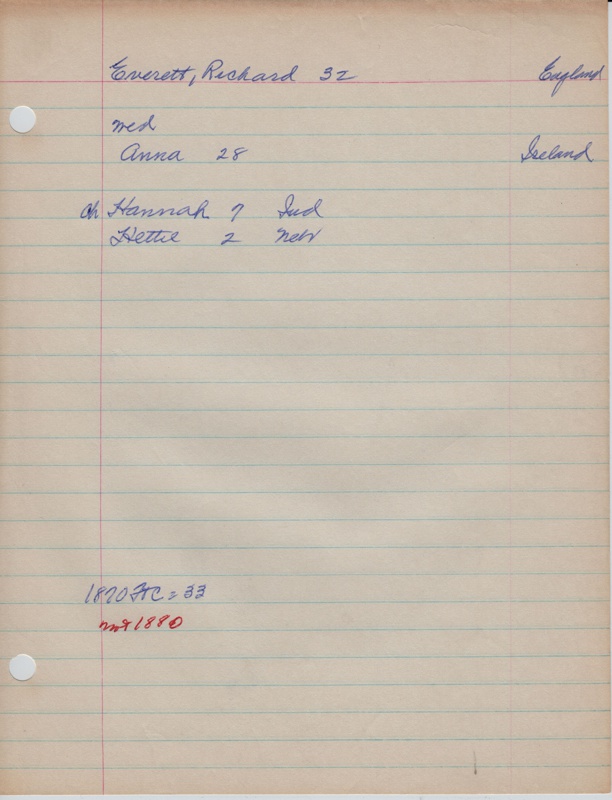 Everett, Richard 32 England
med
Anna 28 Ireland
ch Hannah 7 Ind
Hettie 2 Neb
1870 FTC = 33
not 1880